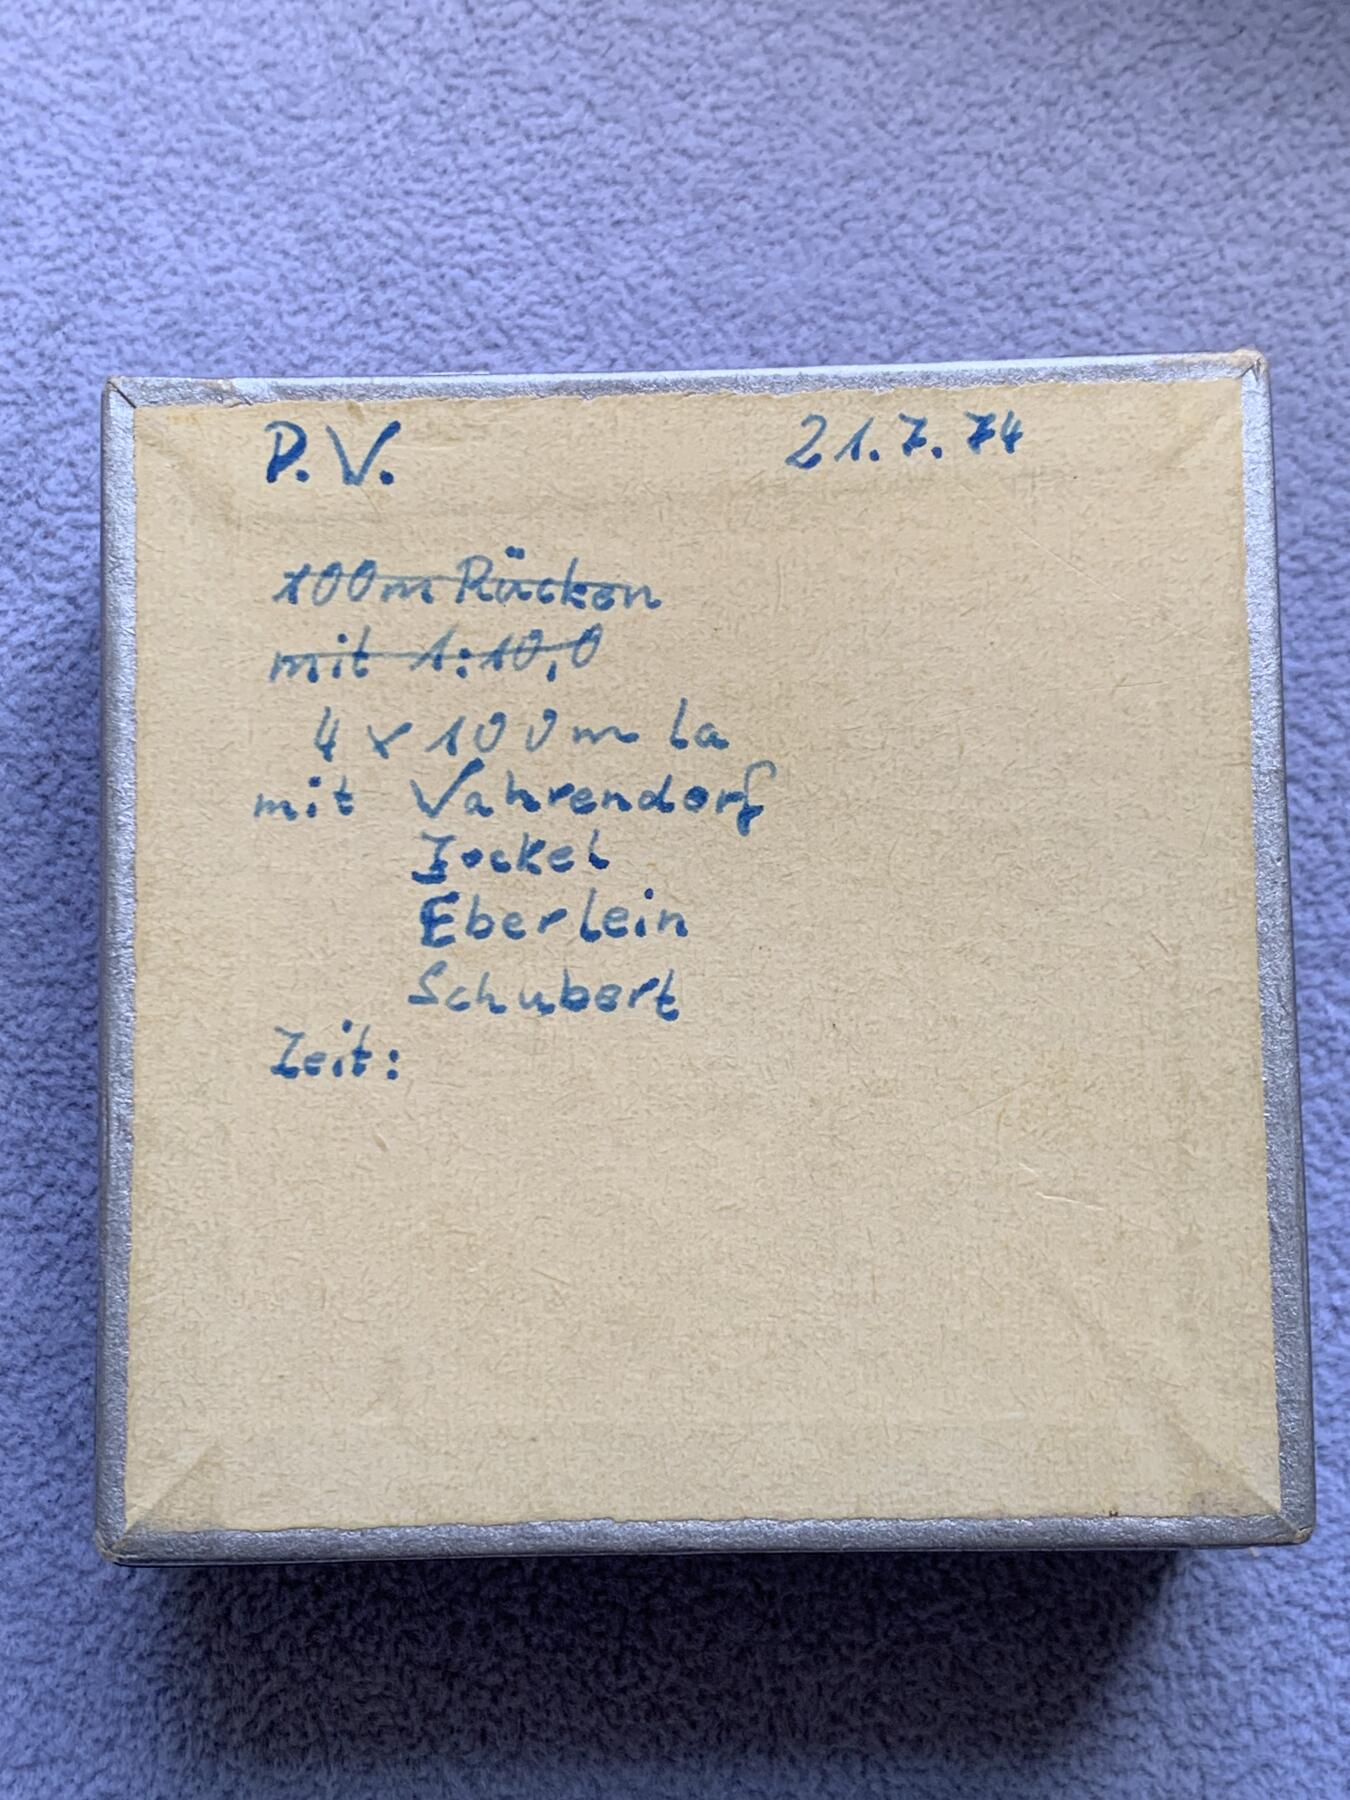 P. V. 21.7.74
100m Rücken
mit 1:10,0
4 x 100m La
mit Vahrendorf
Jockel
Eberlein
Schubert
Zeit: